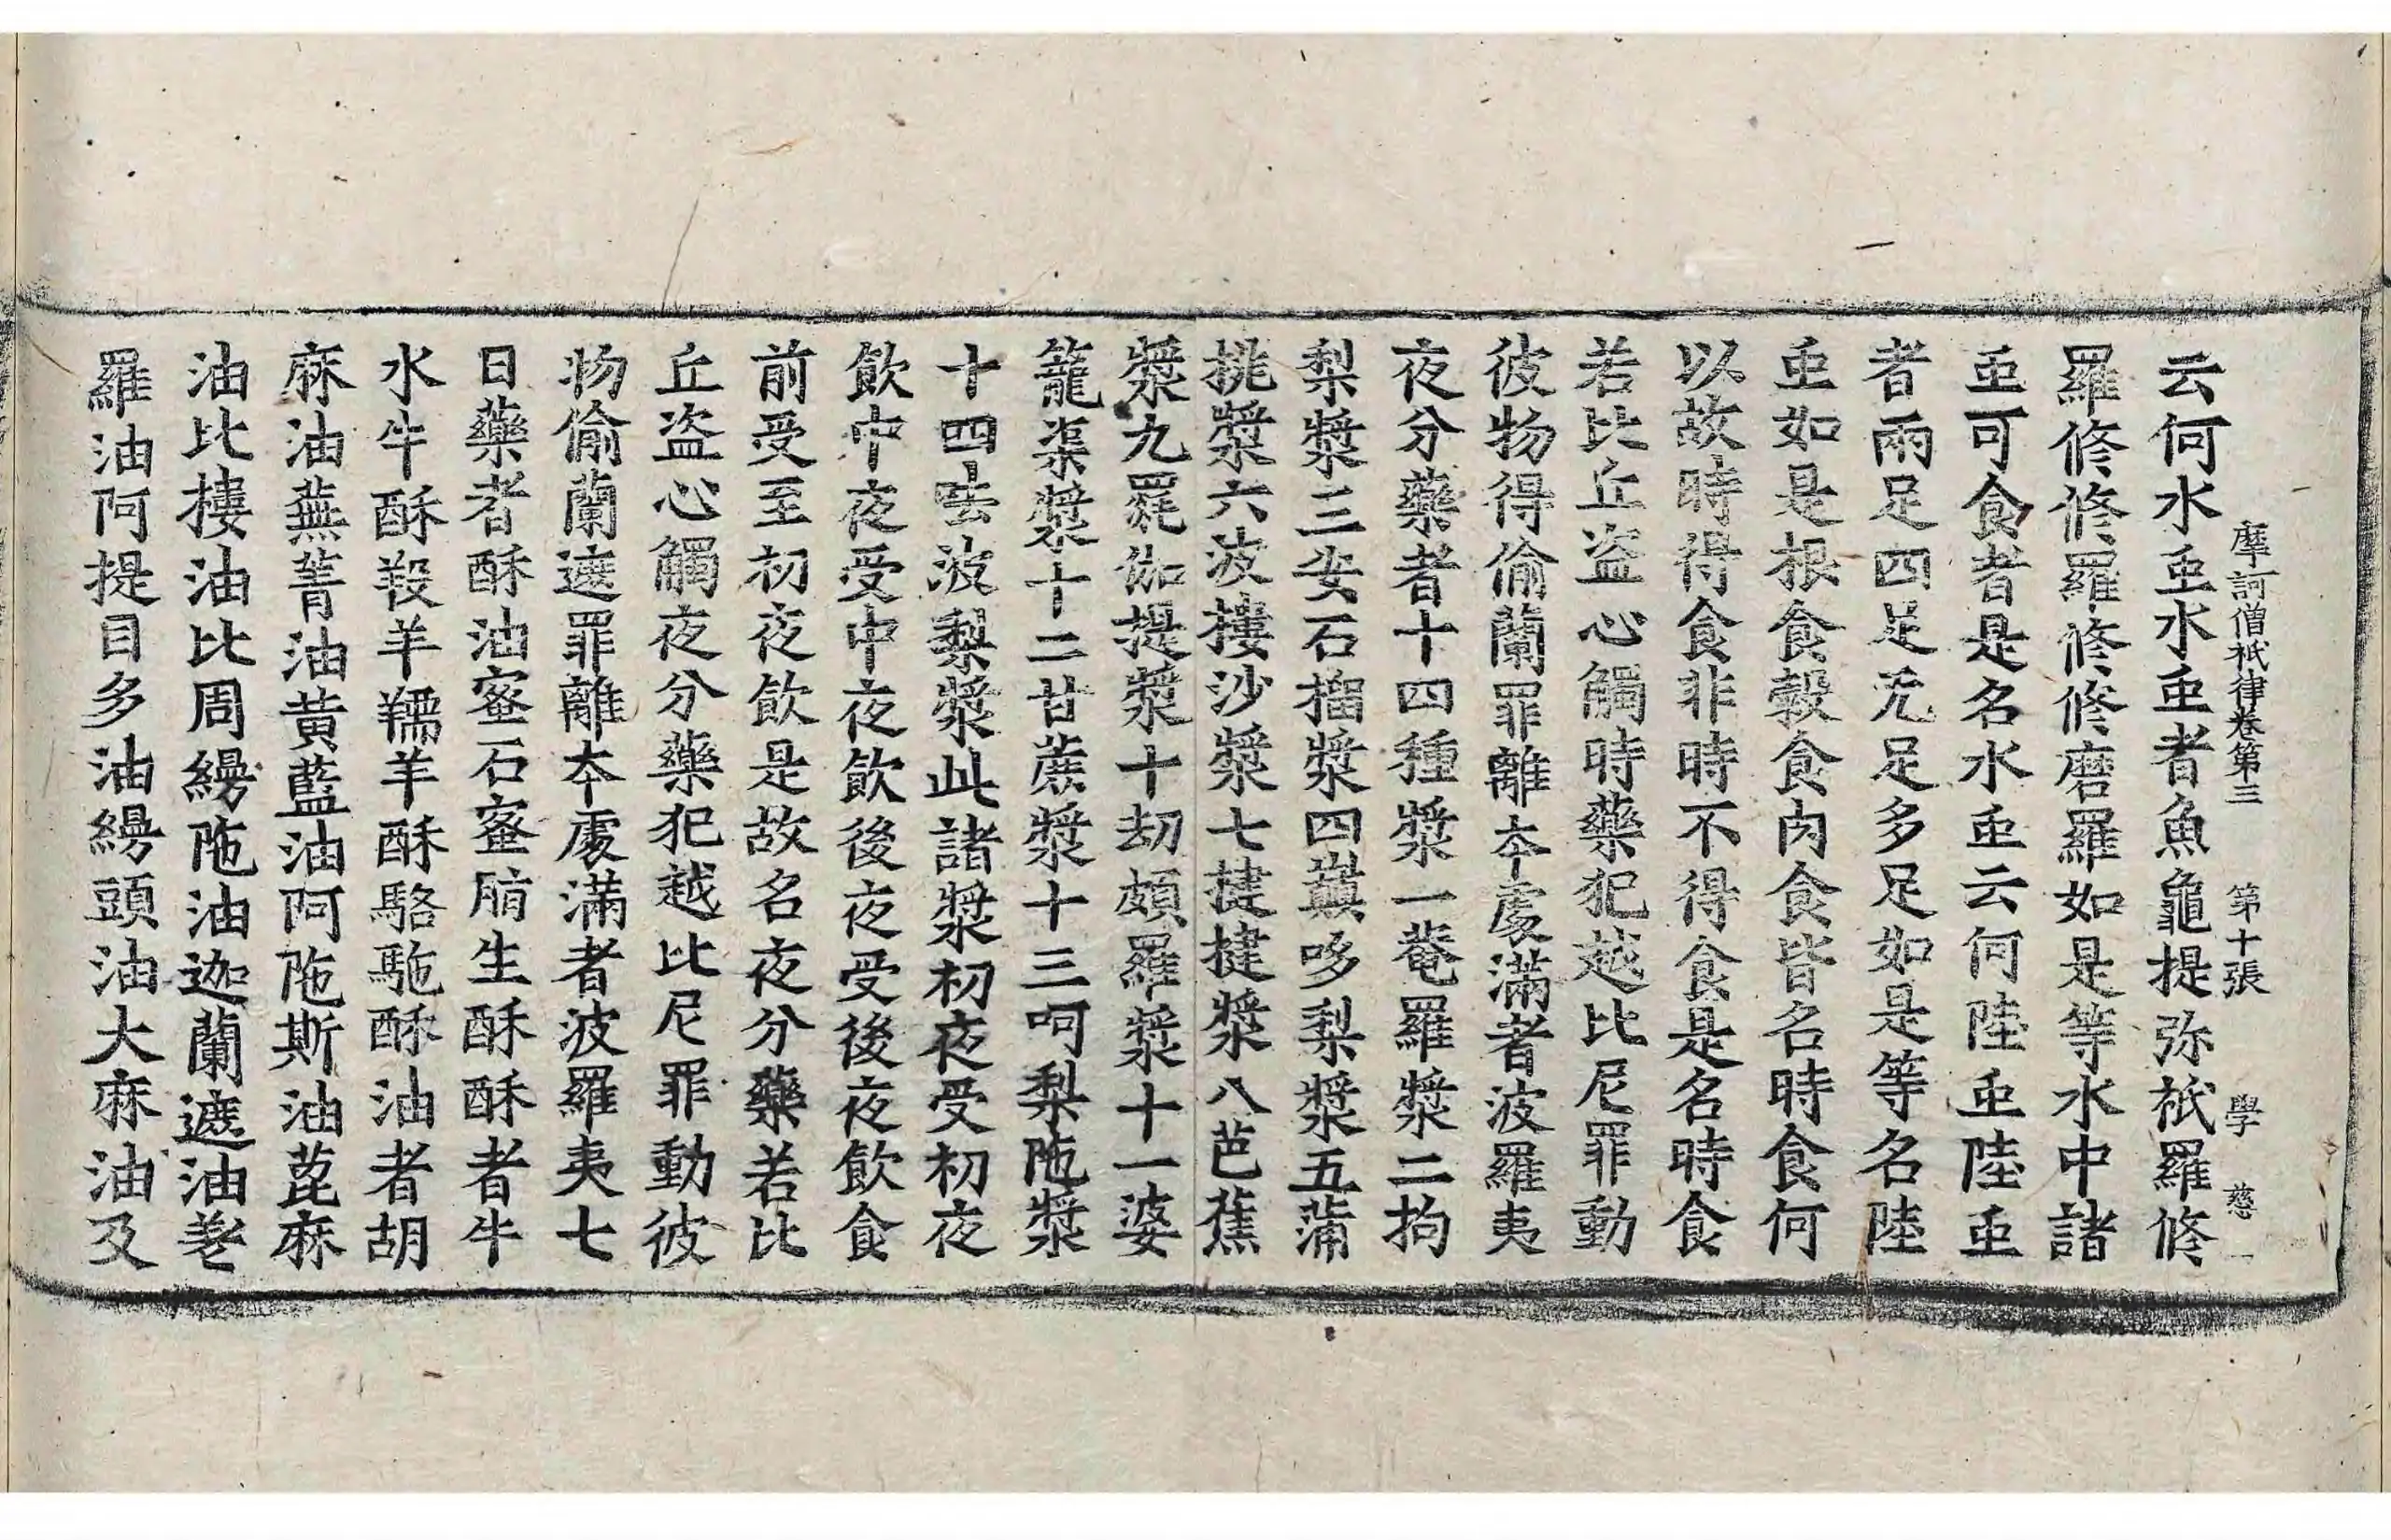 摩訶僧祇律卷第三　第十張　學　慈一
云何水䖝水䖝者魚龜提弥祇羅修
羅修修羅修修磨羅如是等水中諸
䖝可食者是名水䖝云何陸䖝陸䖝
者兩足四足无足多足如是等名陸
䖝如是根食糓食肉食皆名時食何
以故時得食非時不得食是名時食
若比丘盗心觸時藥犯越比尼罪動
彼物得偷蘭罪離夲處滿者波羅夷
夜分藥者十四種漿一菴羅漿二拘
梨漿三安石榴漿四巔哆梨漿五蒲
桃漿六波樓沙漿七揵揵漿八芭蕉
漿九罷伽提漿十劫頗羅漿十一婆
籠渠漿十二甘蔗漿十三呵梨陁漿
十四呿波梨漿此諸漿初夜受初夜
飲中夜受中夜飲後夜受後夜飲食
前受至初夜飲是故名夜分藥若比
丘盗心觸夜分藥犯越比尼罪動彼
物偷蘭遮罪離夲處滿者波羅夷七
日藥者酥油蜜石蜜脂生酥酥者牛
水牛酥羖羊羺羊酥駱駞酥油者胡
麻油蕪菁油黃藍油阿陁斯油蓖麻
油比樓油比周縵陁油迦蘭遮油差
羅油阿提目多油縵頭油大麻油及